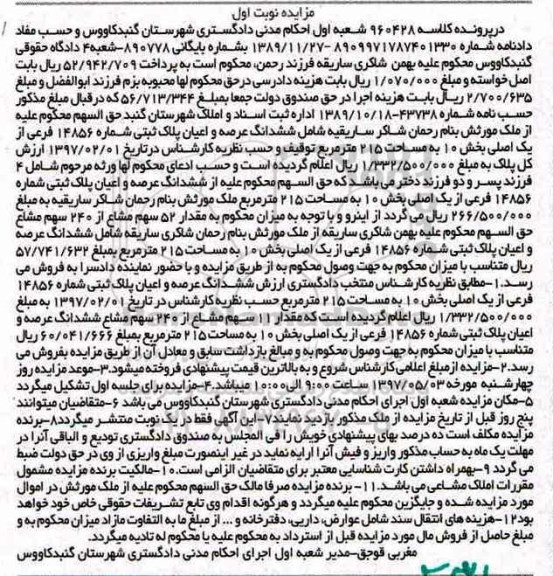 مزایده نوبت اول
درپرونده کلاسه ۹۶۰۴۲۸ شعبه اول احکام مدنی دادگستری شهرستان گنبدکاووس و حسب مفاد
دادنامه شماره ۸۹۰۹۹۷۱۷۸۷۴۰۱۳۳۰ -۱۳۸۹/۱۱/۲۷ بشماره بایگانی ۸۹۰۷۷۸-شعبه۴ دادگاه حقوقی
گنبدکاووس محکوم علیه بهمن شاکری ساریقه فرزند رحمن، محکوم است به پرداخت ۵۲/۹۴۲/۷۰۹ ریال بابت
اصل خواسته و مبلغ ۱/۰۷۰/۰۰۰ ریال بابت هزینه دادرسی درحق محکوم لها محبوبه بزم فرزند ابوالفضل و مبلغ
۲/۷۰۰/۶۳۵ ریال بابت هزینه اجرا در حق صندوق دولت جمعا بمبلغ ۵۶/۷۱۳/۳۴۴ که درقبال مبلغ مذکور
حسب نامه شماره ۴۳۷۳۸-۱۳۸۹/۱۰/۱۸ اداره ثبت اسناد و املاک شهرستان گنبد حق السهم محکوم علیه
از ملک مورثش بنام رحمان شاکر ساریقیه شامل ششدانگ عرصه و اعیان پلاک ثبتی شماره ۱۴۸۵۶ فرعی از
یک اصلی بخش ۱۰ به مساحت ۲۱۵ مترمربع توقیف و حسب نظریه کارشناس درتاریخ ۱۳۹۷/۰۲/۰۱ ارزش
کل پلاک به مبلغ ۱/۳۳۲/۵۰۰/۰۰۰ ریال اعلام گردیده است و حسب ادعای محکوم لها ورثه مرحوم شامل ۴
فرزند پسر و دو فرزند دختر می باشد که حق السهم محکوم علیه از ششدانگ عرصه و اعیان پلاک ثبتی شماره
۱۴۸۵۶ فرعی از یک اصلی بخش ۱۰ به مساحت ۲۱۵ مترمربع ملک مورثش بنام رحمان شاکر ساریقیه به مبلغ
۲۶۶/۵۰۰/۰۰۰ ریال می گردد از اینرو و با توجه به میزان محکوم به مقدار ۵۲ سهم مشاع از ۲۴۰ سهم مشاع
حق السهم محکوم علیه بهمن شاکری ساریقه از ملک مورثش بنام رحمان شاکری ساریقه شامل ششدانگ عرصه
و اعیان پلاک ثبتی شماره ۱۴۸۵۶ فرعی از یک اصلی بخش ۱۰ به مساحت ۲۱۵ مترمربع بمبلغ ۵۷/۷۴۱/۶۳۲
ریال متناسب با میزان محکوم به جهت وصول محکوم به از طریق مزایده و با حضور نماینده دادسرا به فروش می
رسد.۱-مطابق نظریه کارشناس منتخب دادگستری ارزش ششدانگ عرصه و اعیان پلاک ثبتی شماره ۱۴۸۵۶
فرعی از یک اصلی بخش ۱۰ به مساحت ۲۱۵ مترمربع حسب نظریه کارشناس در تاریخ ۱۳۹۷/۰۲/۰۱ به مبلغ
۱/۳۳۲/۵۰۰/۰۰۰ ریال اعلام گردیده است که مقدار ۱۱ سهم مشاع از ۲۴۰ سهم مشاع ششدانگ عرصه و
اعیان پلاک ثبتی شماره ۱۴۸۵۶ فرعی از یک اصلی بخش ۱۰ به مساحت ۲۱۵ مترمربع بمبلغ ۶۰/۰۴۱/۶۶۶ ریال
متناسب با میزان محکوم به جهت وصول محکوم به و مبالغ بازداشت سابق و معادل آن از طریق مزایده بفروش می
رسد.۲-مزایده ازمبلغ اعلامی کارشناس شروع و به بالاترین قیمت پیشنهادی فروخته میشود.۳-موعد مزایده روز
چهارشنبه مورخه ۱۳۹۷/۰۵/۰۳ ساعت ۹:۰۰ الی ۱۰:۰۰ میباشد.۴-مزایده برای جلسه اول تشکیل میگردد
۵-مکان مزایده شعبه اول اجرای احکام مدنی دادگستری شهرستان گنبدکاووس می باشد ۶-متقاضیان میتوانند
پنج روز قبل از تاریخ مزایده از ملک مذکور بازدید نمایند۷-این آگهی فقط در یک نوبت منتشر میگردد۸-برنده
مزایده مکلف است ده درصد بهای پیشنهادی خویش را فی المجلس به صندوق دادگستری تودیع و الباقی آنرا در
مهلت یک ماه به حساب مذکور واریز و فیش آنرا ارایه نماید در غیر اینصورت مبلغ واریزی از وی در حق دولت ضبط
می گردد ۹-بهمراه داشتن کارت شناسایی معتبر برای متقاضیان الزامی است.۱۰-مالکیت برنده مزایده مشمول
مقررات املاک مشاعی می باشد.۱۱- برنده مزایده صرفا مالک حق السهم محکوم علیه از ملک مورثش در اموال
مورد مزایده شده و جایگزین محکوم علیه میگردد و هرگونه اقدام وی تابع تشریفات حقوقی خاص خود خواهد
بود۱۲-هزینه های انتقال سند شامل عوارض، دارایی، دفترخانه و ... از مبلغ ما به التفاوت مازاد میزان محکوم به و
مبلغ حاصل از فروش مال مورد مزایده قبل از استرداد به محکوم علیه یا محکوم له تادیه میگردد.
مغربی قوجق-مدیر شعبه اول اجرای احکام مدنی دادگستری شهرستان گنبدکاووس